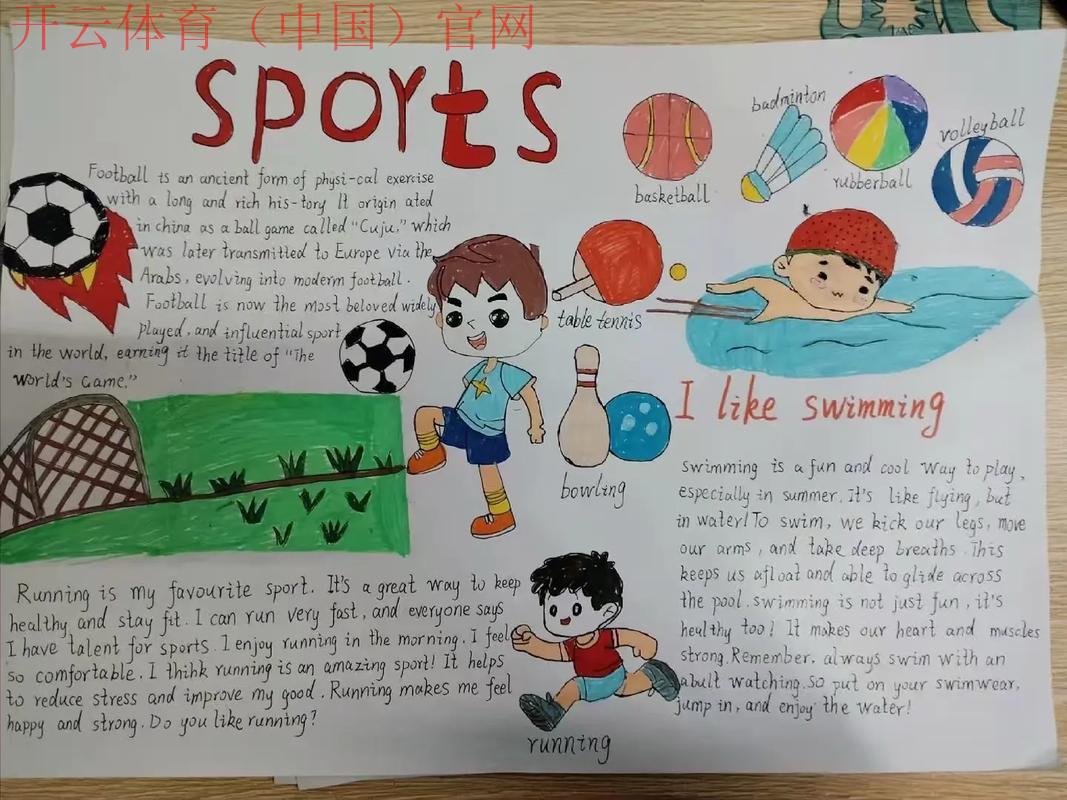 开云体育（中国）官网
SPORTS
Football is an ancient form of physi-cal exercise
with a long and rich his-tory It origin ated
in china as a ball game called "Cuju," which
was later transmitted to Europe via the
Arabs, evolving into moderm football.
Football is now the most beloved widely
played, and influential sport
in the world, earning it the title of "The
World's Game."
basketball
badminton
rubberball
volleyball
table tennis
bowling
I like swimming
Swimming is a fun and cool way to play,
especially in summer. It's like flying, but
in water! To swim, we kick our legs, move
our arms, and take deep breaths. This
keeps us afloat and able to glide across
the pool. swimming is not just fun, it's
heulthy too! It makes our heart and muscles
strong. Remember. always swim with an
abult watching. So put on your swimwear,
jump in, and enjoy the water!
Running is my favourite sport. It's a great way to keep
healthy and stay fit. I can run very fast, and everyone says
I have talent for sports. I enjoy running in the morning. I feel
so comfortable. I thihk running is an amazing sport! It helps
to reduce stress and improve my good. Running makes me feel
happy and strong. Do you like running?
running